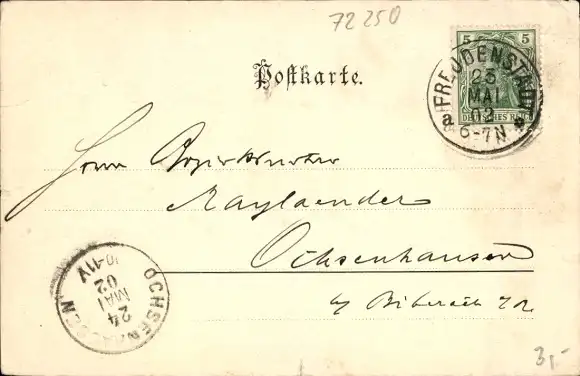 72250
5 5
DEUTSCHES REICH
FREUDENSTADT
23
MAI
02
a
6-7N
Postkarte.
Herrn
Maylaender
Ochsenhausen
b/ Biberach
OCHSENHAUSEN
24
MAI
02
10-11V
3,-